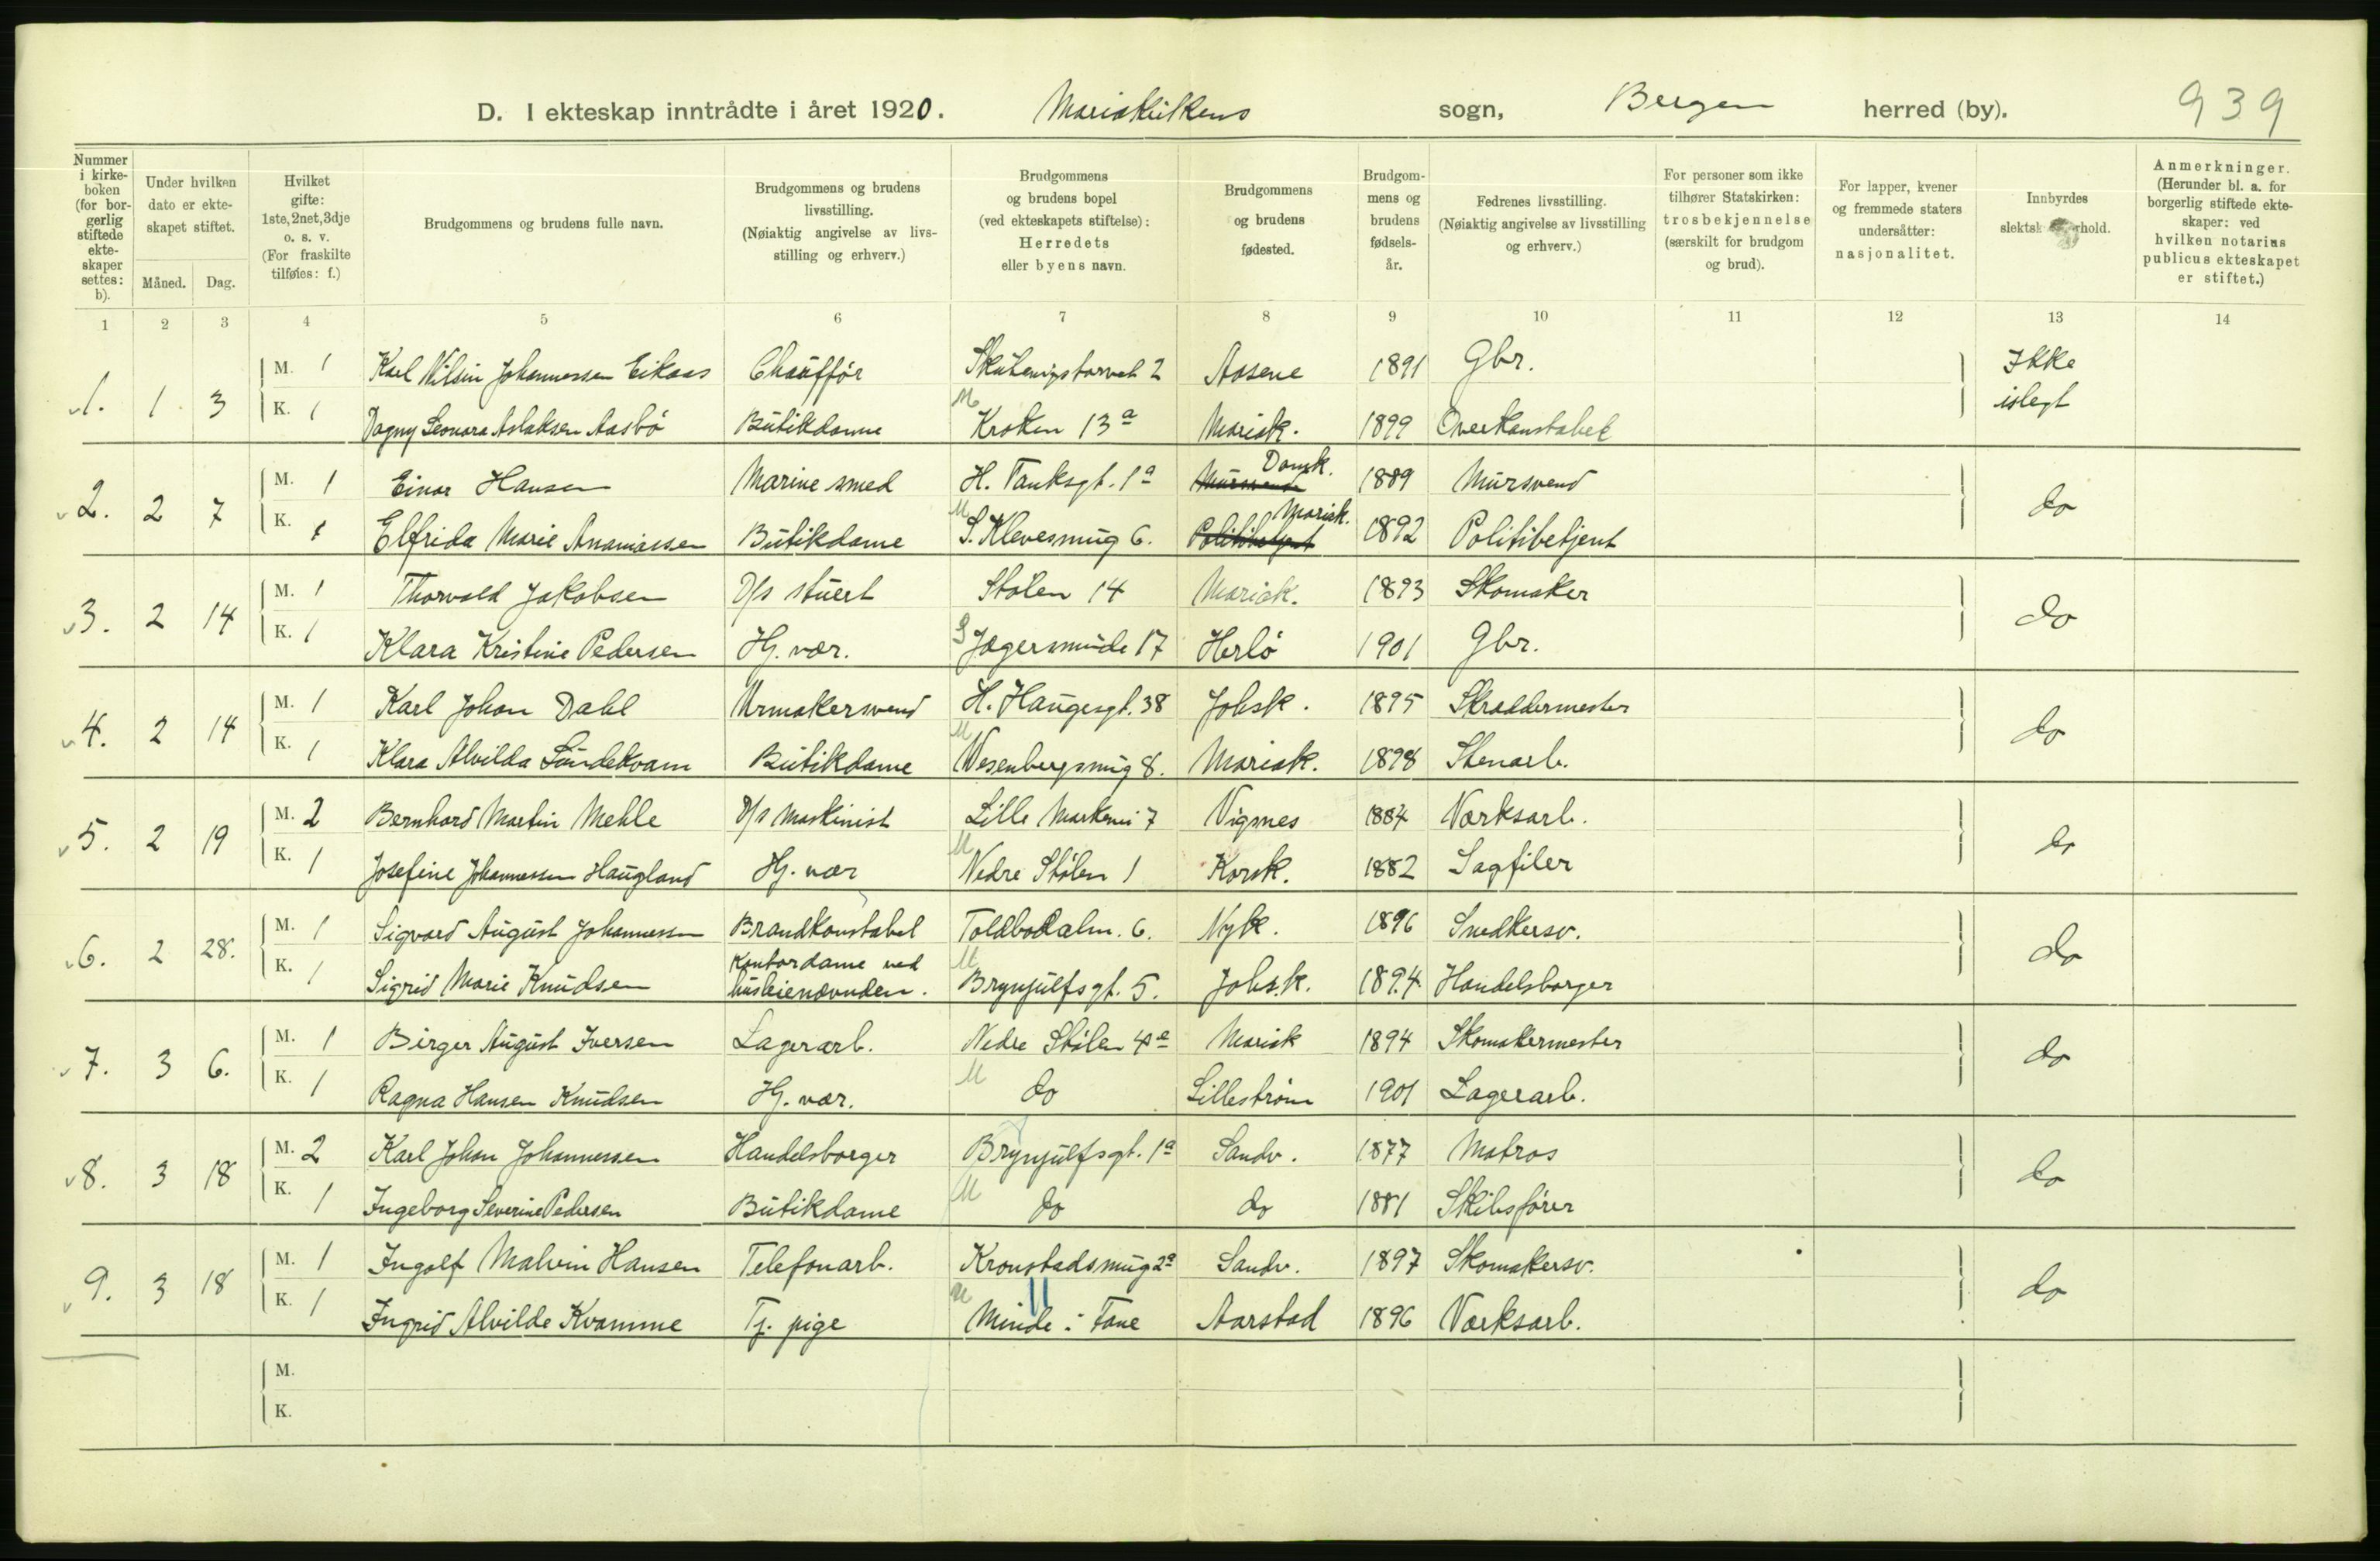 D. I ekteskap inntrådte i året 1920. Mariakirkens sogn, Bergen herred (by). 939
Nummer i kirkeboken (for borgerlig stiftede ekteskaper settes: b).
Under hvilken dato er ekteskapet stiftet.
Måned. Dag.
Hvilket gifte: 1ste, 2net, 3dje o. s. v. (For fraskilte tilføies: f.)
Brudgommens og brudens fulle navn.
Brudgommens og brudens livsstilling. (Nøiaktig angivelse av livsstilling og erhverv.)
Brudgommens og brudens bopel (ved ekteskapets stiftelse): Herredets eller byens navn.
Brudgommens og brudens fødested.
Brudgommens og brudens fødselsår.
Fedrenes livsstilling. (Nøiaktig angivelse av livsstilling og erhverv.)
For personer som ikke tilhører Statskirken: trosbekjennelse (særskilt for brudgom og brud).
For lapper, kvener og fremmede staters undersåtter: nasjonalitet.
Innbyrdes
Anmerkninger. (Herunder bl. a. for borgerlig stiftede ekteskaper: ved hvilken notarius publicus ekteskapet er stiftet.)
1 2 3 4 5 6 7 8 9 10 11 12 13 14
1. 1 3 M. 1 Karl Johannessen Eikaas Chauffør 2 Aasene 1891 Gbr. Ikke islegt
K. 1 Dagny Leonora Aslaksen Aasbø Butikdame M Kroken 13a Mariak. 1899 Overkonstabel
2. 2 7 M. 1 Einar Hansen Marine smed H. Tanksgt. 1a Domk. 1889 Mursvend do
K. 1 Elfrida Marie Ananiassen Butikdame M S. Klevesmug 6. Mariak. 1892 Politibetjent
3. 2 14 M. 1 Thorvald Jakobsen D/s stuert Stølen 14 Mariak. 1893 Skomaker do
K. 1 Klara Kristine Pedersen Hj. vær. Jægersminde 17 Herlø 1901 Gbr.
4. 2 14 M. 1 Karl Johan Dahl Urmakersvend H. Haugesgt. 38 Johsk. 1895 Skræddermester do
K. 1 Klara Alvilda Sundekvam Butikdame M Wesenbergsmug 8. Mariak. 1898 Stenarb.
5. 2 19 M. 2 Bernhard Martin Mehle D/s Maskinist Lille Markevei 7 Vigsnes 1884 Værksarb. do
K. 1 Josefine Johannessen Haugland Hj. vær M Nedre Stølen 1 Korsk. 1882 Sagfiler
6. 2 28. M. 1 Sigvard August Johannessen Brandkonstabel Toldbodalm. 6. Nyk. 1896 Snedkersv. do
K. 1 Sigrid Marie Knudsen Kontordame ved husleienævnden. M Brynjulfsgt. 5. Johs.k. 1894 Handelsborger
7. 3 6. M. 1 Birger August Iversen Lagerarb. Nedre Stølen 4e Mariak 1894 Skomakermester do
K. 1 Ragna Hansen Knudsen Hj. vær. M do Lillestrøm 1901 Lagerarb.
8. 3 18 M. 2 Karl Johan Johannessen Handelsborger Brynjulfsgt. 1a Sandv. 1877 Matros do
K. 1 Ingeborg Severine Pedersen Butikdame M do do 1881 Skibsfører
9. 3 18 M. 1 Ingolf Malvin Hansen Telefonarb. Kronstadsmug 2a Sandv. 1897 Skomakersv. do
K. 1 Ingrid Alvilde Kvamme Tj. pige Minde i Fane Aarstad 1896 Værksarb.
M.
K.